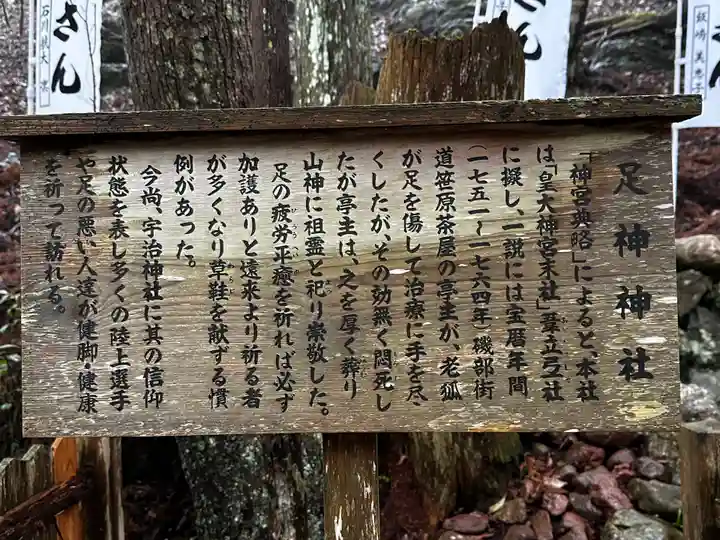 足神神社
「神宮典略」によると、本社
は「皇大神宮末社」葦立弖社
に擬し、一説には宝暦年間
(一七五一~一七六四年)磯部街
道笹原茶屋の亭主が、老狐
が足を傷して治療に手を尽
くしたが、その効無く悶死し
たが亭主は、之を厚く葬り
山神に祖霊と祀り崇敬した。
足の疲労平癒を祈れば必ず
加護ありと遠来より祈る者
が多くなり草鞋を献ずる慣
例があった。
今尚、宇治神社に其の信仰
状態を表し多くの陸上選手
や足の悪い人達が健脚・健康
を祈って訪れる。
さん
さん